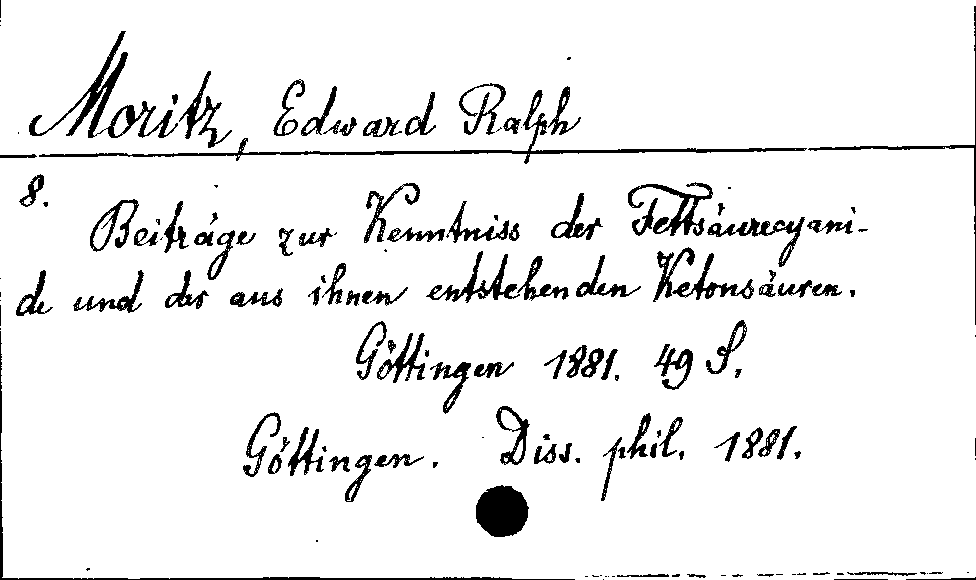 Moritz, Edward Ralph
8.
Beiträge zur Kenntniss der Fettsäurecyani-
de und der aus ihnen entstehenden Ketonsäuren.
Göttingen 1881. 49 S.
Göttingen. Diss. phil. 1881.